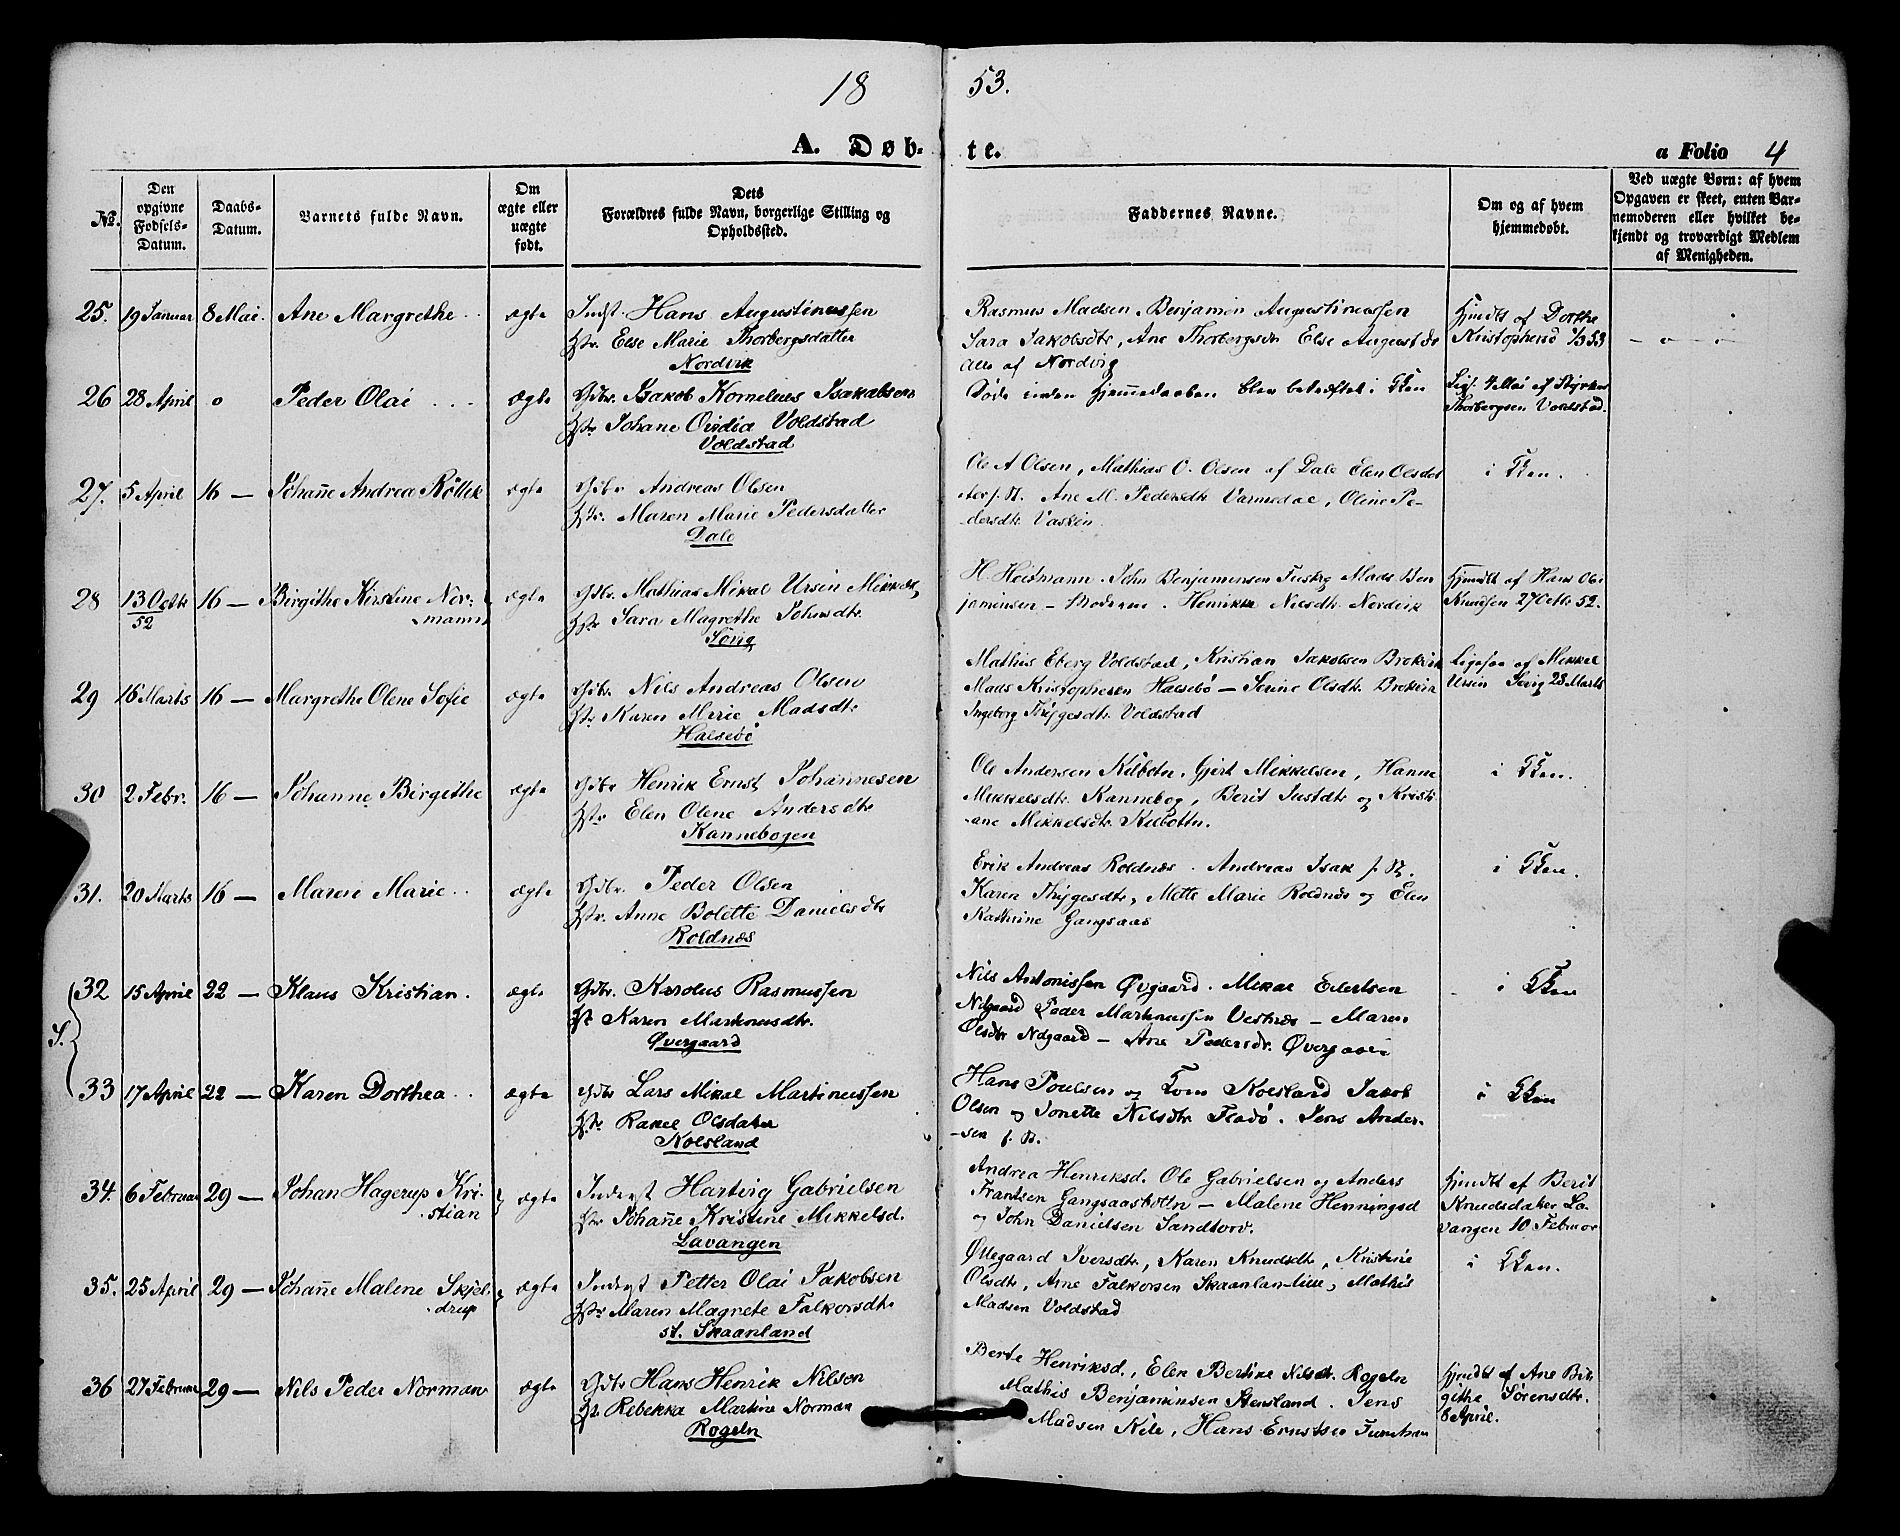 18 53.
A. Døb- te. a Folio 4
No. Den opgivne Fødsels-Datum. Daabs-Datum. Barnets fulde Navn. Om ægte eller uægte født. Dets Forældres fulde Navn, borgerlige Stilling og Opholdssted. Faddernes Navne. Om og af hvem hjemmedøbt. Ved uægte Børn: af hvem Opgaven er skeet, enten Barnemoderen eller hvilket bekjendt og troværdigt Medlem af Menigheden.
25. 19 Januar 8 Mai. Ane Margrethe ægte Indst. Hans Augustinussen
Else Marie Thorbergsdatter
Nordvik
Rasmus Madsen, Benjamin Augustinussen
Sara Jakobsdtr, Ane Thorbergsdtr Else August
alle af Nordvig
Hjmdbt af Dorthe
Kristophersd 1/3 53
26 28 April o Peder Olai ægte Gdbr. Isakob Kornelius Isakabsen
Johane Ovidia Voldstad
Voldstad
Døde inden hjemmedaaben blev bekræftet i Kken
Thorbergsen Voldstad.
27. 5 April 16 — Johañe Andrea Röllek ægte Gdbr Andreas Olsen
Maren Marie Pedersdatter
Dale
Ole A Olsen, Mathias O. Olsen af Dale Elen Olsdat
ter f. St. Ane M. Pedersdtr Varmedal, Oline Pe-
dersdtr Vasken
i Kken.
28 13 Octbr 52 16 — Birgithe Kirstine Nor-
mann ægte Gdbr. Mathias Mikal Ursin Mikkels
Sara Magrethe Johnsdtr.
Sørig
H. Heitmann. John Benjaminsen Mads Ben
jaminsen — Moderen. Henrikke Nilsdtr. Nordvik
Hjmdbt af Hans Ole
Knudsen 27 Octbr 52.
29 16 Marts 16 — Margrethe Olene Sofie ægte Gdbr. Nils Andreas Olsen
Karen Marie Madsdtr
Halsebø
Mathias Eberg Voldstad, Kristian Jakobsen Brokvik
Mads Kristophersen Halsebø — Serine Olsdtr. Brokvik
Ingeborg Thrygesdtr Voldstad
Ligesaa af Mikkel
Ursin Sørig 28 Marts
30 2 Febr. 16 — Johanne Birgithe ægte Gdbr Henrik Ernst Johannesen
Elen Olene Andersdtr
Kannebogen
Ole Andersen Kilbotn, Gjert Mikkelsen, Hanna
Mikkelsdtr. Kannebog, Berit Justdtr og Kristi
ane Mikkelsdtr. Kilbottn.
i Kken.
31. 20 Marts 16 — Maren Marie ægte Gdbr. Peder Olsen
Anne Bolette Danielsdtr
Roldnæs
Erik Andreas Roldnæs. Andreas Isak f. St.
Karen Thrygesdtr, Mette Marie Roldnæs og Elen
Kathrine Gangsaas
i Kken.
S. 32 15 April 22 — Klaus Kristian. ægte Gdbr. Karolus Rasmussen
Karen Markusdtr.
Øvergaard
Nils Antonissen Øvgaard. Mikal Edertsen
Nilgaard Peder Markussen Vestnæs — Maren
Olsdtr Nilgaard — Ane Pedersdr. Øvergaard
i Kken
33 17 April 22 — Karen Dorthea ægte Gdbr Lars Mikal Martinussen
Rakel Olsdater
Kolsland
Hans Poulsen og Tom Kolsland Jakob
Olsen og Jonette Nilsdtr Flødø. Jens Ander-
-sen f. St.
i Kken
34. 6 Februar 29 — Johan Hagerup Kri-
stian ægte Indgst Hartvig Gabrielsen
Johañe Kristine Mikkelsd.
Lavangen
Andrea Henriksd. Ole Gabrielsen og Anders
Frantsen Gangsaasbotn — Malene Henningsd
og John Danielsen Sandtorv.
Hjmdbt af Berit
Knudsdater La-
vangen 10 Februar
35. 25 April 29 — Johañe Malene Skjel-
drup ægte Indgst Petter Olai Jakobsen
Maren Magrete Falkorsdtr
st. Skaanland
Øllegaard Iversdtr, Karen Knudsdtr, Kristine
Olsdtr, Arne Falkorsen Skaanlan-lille, Mathis
Madsen Voldstad
i Kken.
36 27 Februar 29 — Nils Peder Norman ægte Gdbr Hans Henrik Nilsen
Rebekka Martine Norman
Rogeln
Berte Henriksd., Elen Bertine Nilsdtr. Rogeln
Mathis Benjaminsen Stensland. Jens
Madsen Kile, Hans Ernstsen
Hjmdbt af Ane Bir-
githe Sørensdtr.
8 April.